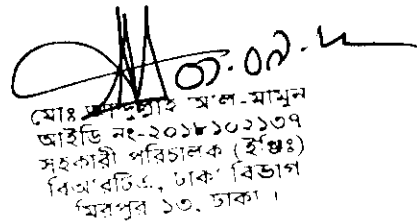 মোঃ আব্দুল্লাহ আল-মামুন
আইডি নং-২০১৮১০২১৩৭
সহকারী পরিচালক (ইঞ্জিঃ)
বিআরটিএ, ঢাকা বিভাগ
মিরপুর ১৩, ঢাকা ।